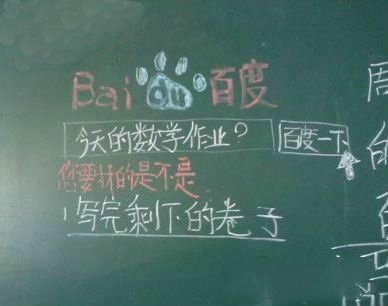 Bai du 百度
今天的数学作业？ 百度一下
您要找的是不是
写完剩下的卷子
周
的